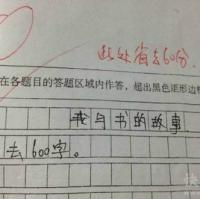 此处省去60分.
在各题目的答题区域内作答，超出黑色矩形边框
我与书的故事
去600字。